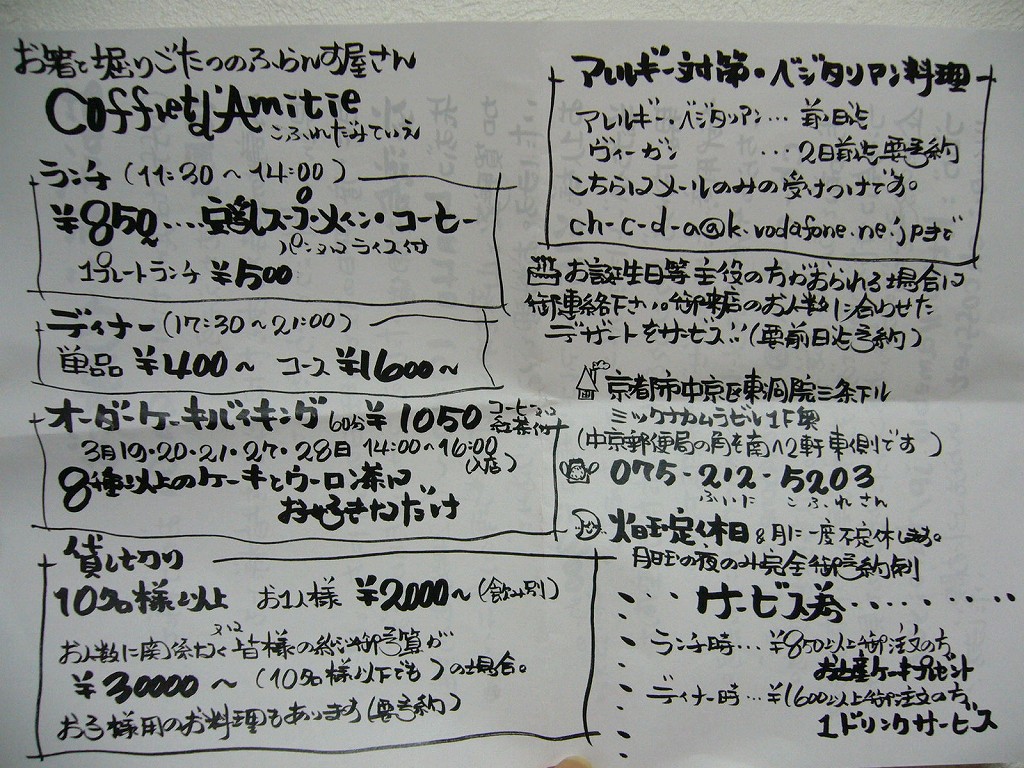 お箸と堀りごたつのふらんす屋さん
Coffret d'Amitie
こふれだみてぃえ
ランチ (11:30~14:00)
¥850....豆乳スープ・メイン・コーヒー
パンorライス付
1プレートランチ ¥500
ディナー(17:30~21:00)
単品 ¥400~ コース ¥1600~
オーダーケーキバイキング 60分¥1050 コーヒーor紅茶付
3月19・20・21・27・28日 14:00~16:00(入店)
8種以上のケーキとウーロン茶は
お好きなだけ
貸し切り
10名様以上 お1人様 ¥2000~(飲み別)
or
お人数に関係なく皆様の総御予算が
¥30000~(10名様以下でも)の場合。
お子様用のお料理もあります(要予約)
アレルギー対策・ベジタリアン料理
アレルギー・ベジタリアン... 前日迄
ヴィーガン ...2日前迄要予約
こちらはメールのみの受けつけです。
ch-c-d-a@k.vodafone.ne.jpまで
お誕生日等主役の方がおられる場合は
御連絡下さい。御来店のお人数に合わせた
デザートをサービス!!(要前日迄予約)
京都市中京区東洞院三条下ル
ミックナカムラビル1F奥
(中京郵便局の角を南へ2軒東側です)
075-212-5203
ふいに こふれさん
火曜定休日&月に一度不定休します。
月曜の夜のみ完全御予約制
サービス券
ランチ時...¥850以上御注文の方
お土産ケーキプレゼント
ディナー時...¥1600以上御注文の方
1ドリンクサービス